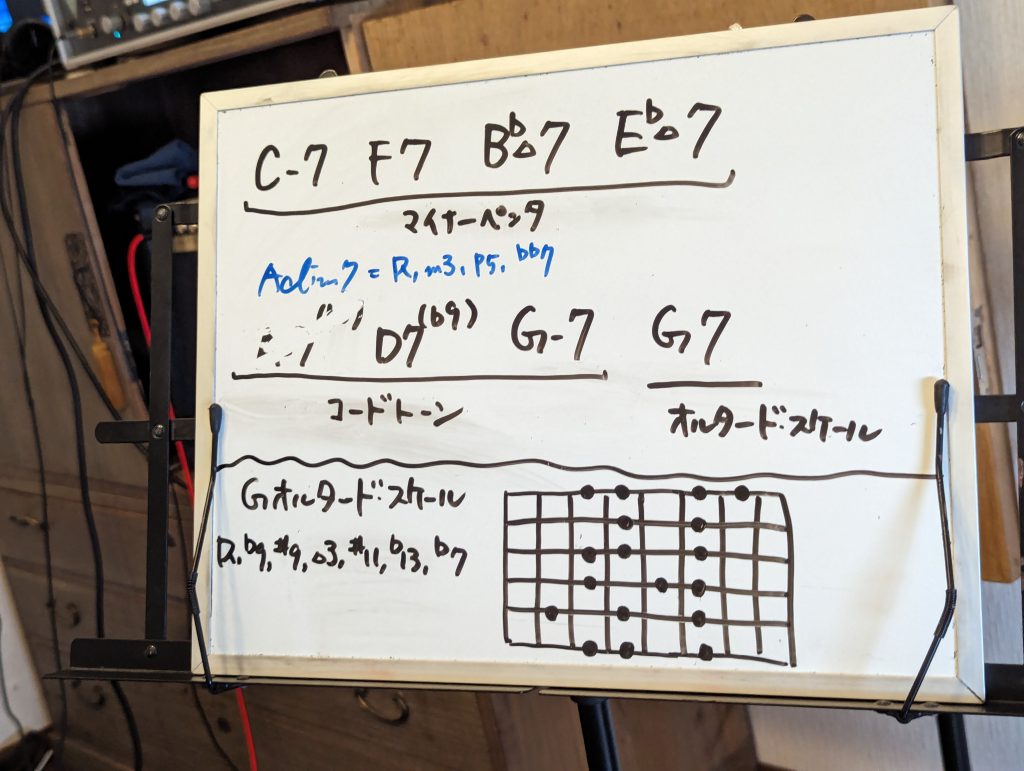 C-7 F7 B♭△7 E♭△7
マイナーペンタ
Adim7 = R, m3, P5, ♭♭7
D7(♭9) G-7 G7
コードトーン オルタードスケール
Gオルタードスケール
R, ♭9, #9, △3, #11, ♭13, ♭7